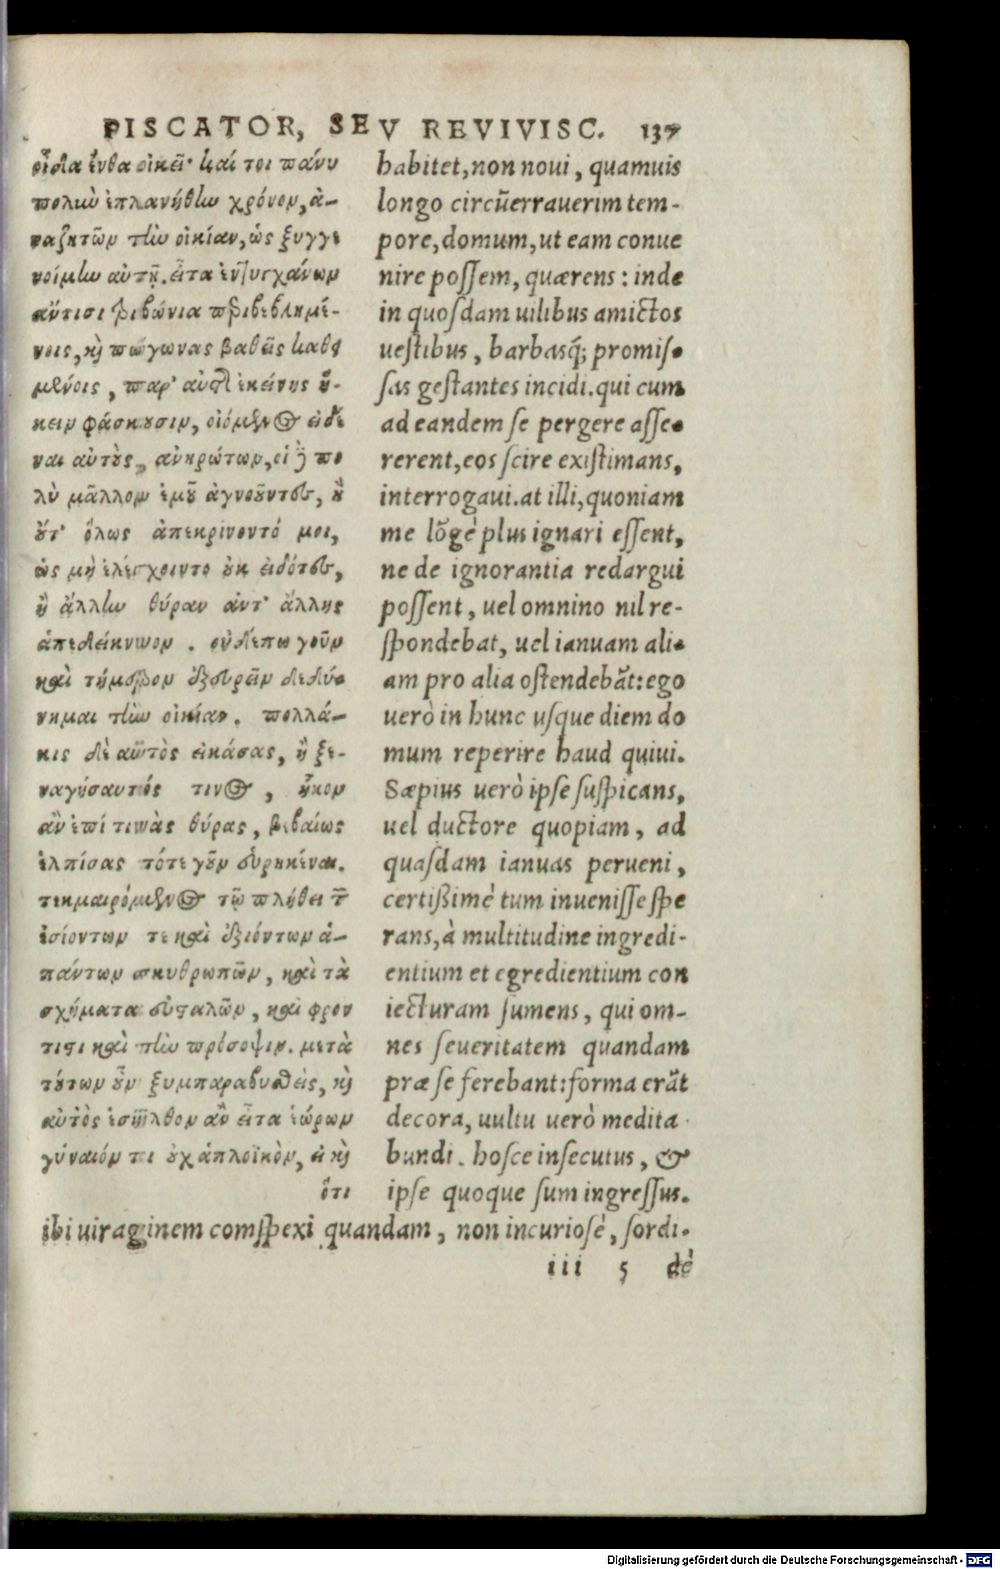 PISCATOR, SEV REVIVISC. 137
οἶδα ἔνθα οἰκεῖ· καί τοι πάνυ
πολιὼ ἐπλανήθlω χρόνον, ἀ-
ναζητῶν τlὼ οἰκίαν, ὡς ξυγγε
νοίμlω αὐτῇ. εἶτα ἐντυγχάνων
ἄντισι τριβώνια περιβεβλημέ-
νοις, καὶ πώγωνας βαθεῖς καθε
μένοις, παρ' αὐτὴν ἐκείνης ἥ-
κειν φάσκουσιν, οἰόμενος εἰδέ
ναι αὐτοὺς, ἀνηρώτων, οἱ δὲ πο
λὺ μᾶλλον ἐμοῦ ἀγνοοῦντες, ἢ
οὔτ' ὅλως ἀπεκρίνοντό μοι,
ὡς μὴ ἐλέγχοιντο οὐκ εἰδότες,
ἢ ἄλλlω θύραν ἀντ' ἄλλης
ἀπεδείκνυον. οὐδέπω γοῦν
καὶ τήμερον ἐξευρεῖν δεδύ-
νημαι τlὼ οἰκίαν. πολλά-
κις δὲ αὐτὸς εἰκάσας, ἢ ξε-
ναγήσαντός τινος, ἧκον
ἂν ἐπί τινὰς θύρας, βεβαίως
ἐλπίσας τότε γοῦν εὑρηκέναι.
τεκμαιρόμενος τῷ πλήθει τῶν
ἐσίοντων τε καὶ ἐξιόντων ἁ-
πάντων σκυθρωπῶν, καὶ τὰ
σχήματα εὐσταλῶν, καὶ φρον
τιστικῶν τlὼ πρόσοψιν. μετὰ
τούτων οὖν ξυμπαραβυσθεὶς, καὶ
αὐτὸς ἐσῆλθον ἂν εἶτα ἑώρων
γύναιόν τι οὐχ ἁπλοϊκὸν, εἰ καὶ
ὅτι
habitet, non noui, quamuis
longo circũerrauerim tem-
pore, domum, ut eam conue
nire possem, quærens: inde
in quosdam uilibus amictos
uestibus, barbasq́; promis-
sas gestantes incidi. qui cum
ad eandem se pergere asse-
rerent, eos scire existimans,
interrogaui. at illi, quoniam
me lõgè plus ignari essent,
ne de ignorantia redargui
possent, uel omnino nil re-
spondebat, uel ianuam ali-
am pro alia ostendebãt: ego
uerò in hunc usque diem do
mum reperire haud quiui.
Sæpius uerò ipse suspicans,
uel ductore quopiam, ad
quasdam ianuas perueni,
certißimè tum inuenisse spe
rans, à multitudine ingredi-
entium et egredientium con
iecturam sumens, qui om-
nes seueritatem quandam
præ se ferebant: forma erãt
decora, uultu uerò medita
bundi. hosce insecutus, &
ipse quoque sum ingressus.
ibi uiraginem comspexi quandam, non incuriosè, sordi-
iii 5 dè
Digitalisierung gefördert durch die Deutsche Forschungsgemeinschaft - DFG